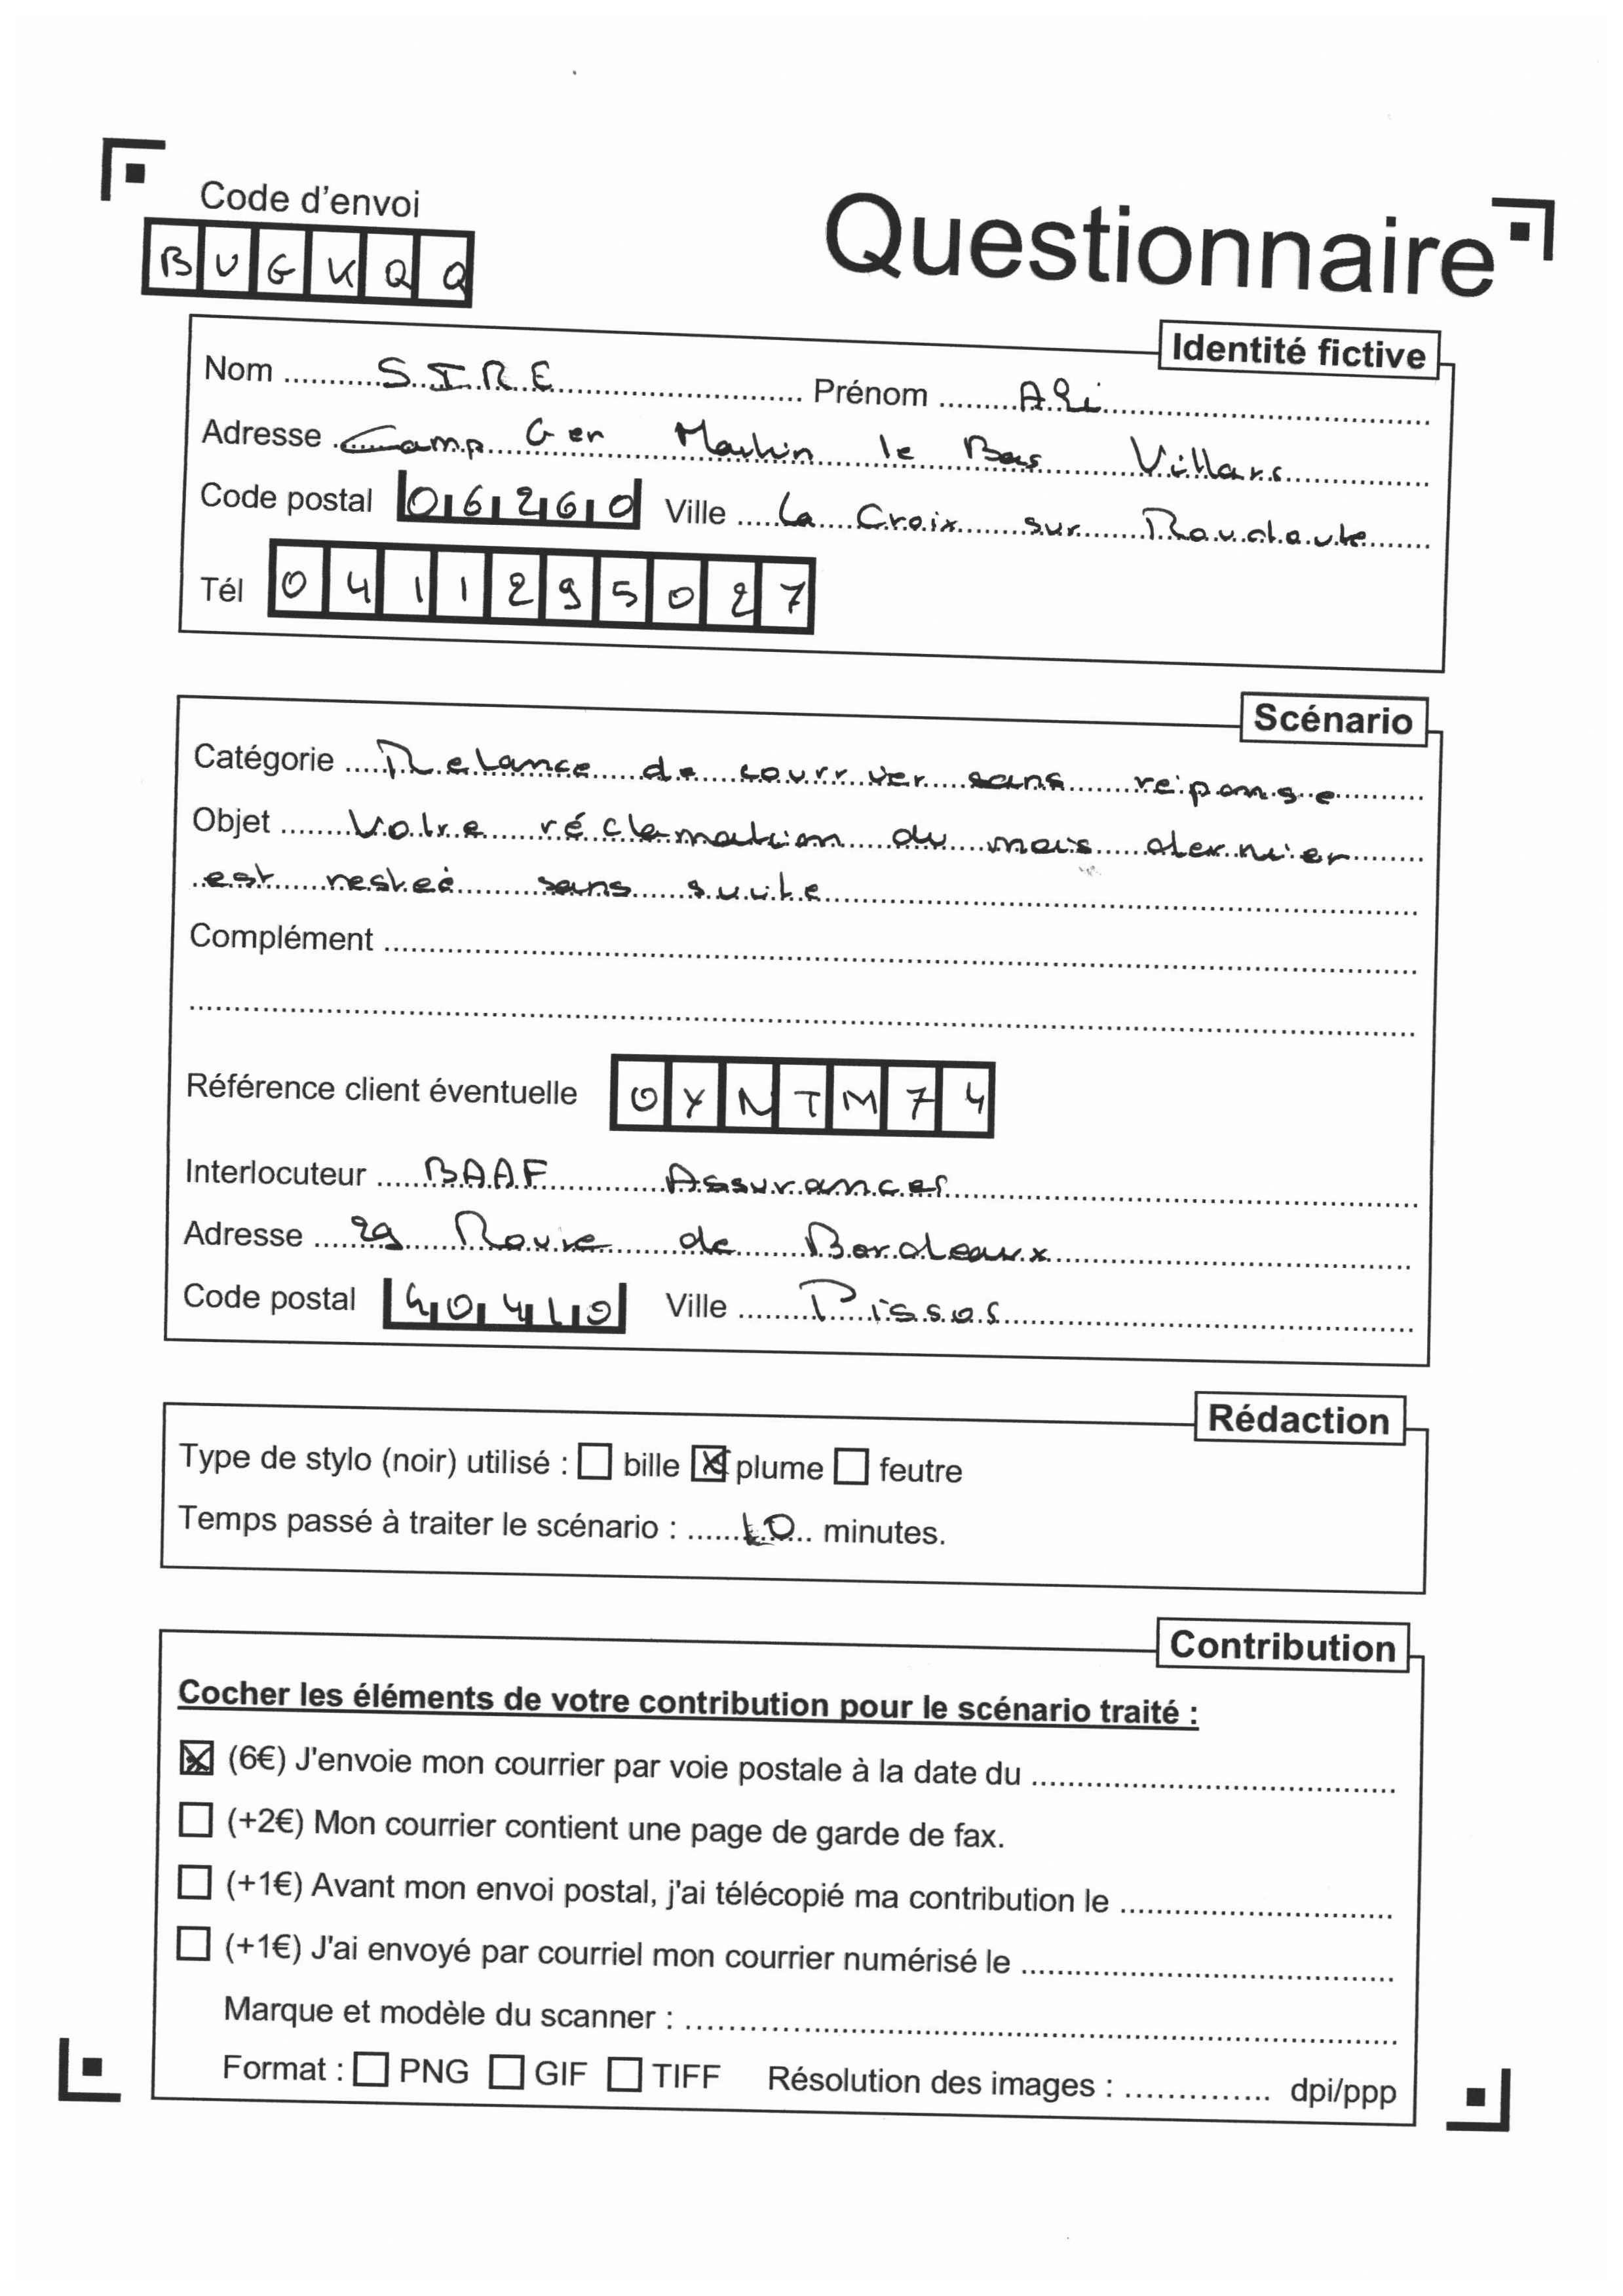 Code d'envoi
BUGKQQ
Questionnaire
Identité fictive
Nom SIRE Prénom Ali
Adresse Camp Gen Martin le Bas Villars
Code postal 06260 Ville La Croix sur Roudoule
Tél 0411295027
Scénario
Catégorie Relance de courrier sans réponse
Objet Votre réclamation du mois dernier
est resteé sans suite
Complément
Référence client éventuelle OYNTM74
Interlocuteur BAAF Assurances
Adresse 29 Route de Bordeaux
Code postal 40410 Ville Pissos
Rédaction
Type de stylo (noir) utilisé : bille plume feutre
Temps passé à traiter le scénario : 10 minutes.
Contribution
Cocher les éléments de votre contribution pour le scénario traité :
(6€) J'envoie mon courrier par voie postale à la date du
(+2€) Mon courrier contient une page de garde de fax.
(+1€) Avant mon envoi postal, j'ai télécopié ma contribution le
(+1€) J'ai envoyé par courriel mon courrier numérisé le
Marque et modèle du scanner :
Format : PNG GIF TIFF Résolution des images : dpi/ppp